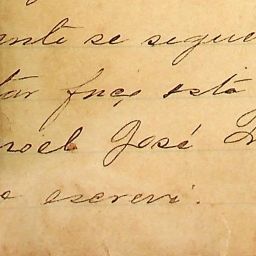 ante se segue
tar faço esta
noel José
escrevi.